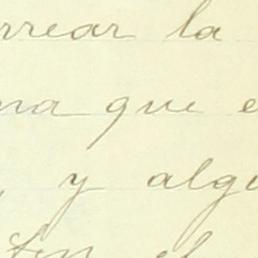 rrear la
na que e
y algu
ten el